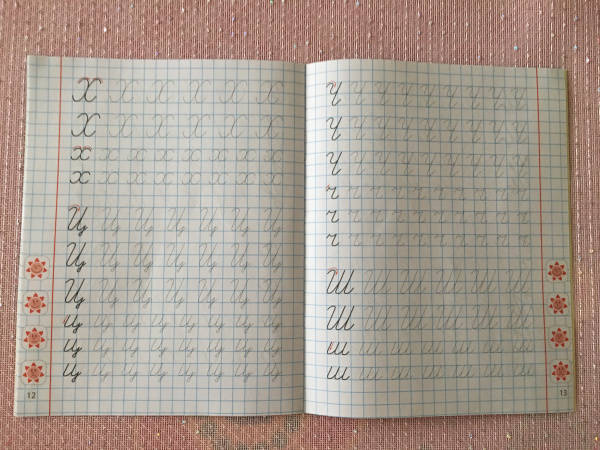 Х Х Х Х Х Х
Х Х Х Х Х Х
х х х х х х х х
х х х х х х х х
Ц Ц Ц Ц Ц Ц Ц
Ц Ц Ц Ц Ц Ц Ц
Ц Ц Ц Ц Ц Ц Ц
ц ц ц ц ц ц ц ц
ц ц ц ц ц ц ц ц
ц ц ц ц ц ц ц ц
12
Ч Ч Ч Ч Ч Ч Ч Ч Ч
Ч Ч Ч Ч Ч Ч Ч Ч Ч
Ч Ч Ч Ч Ч Ч Ч Ч Ч
ч ч ч ч ч ч ч ч ч ч
ч ч ч ч ч ч ч ч ч ч
ч ч ч ч ч ч ч ч ч ч
Ш Ш Ш Ш Ш Ш
Ш Ш Ш Ш Ш Ш
ш ш ш ш ш ш ш
ш ш ш ш ш ш ш
13